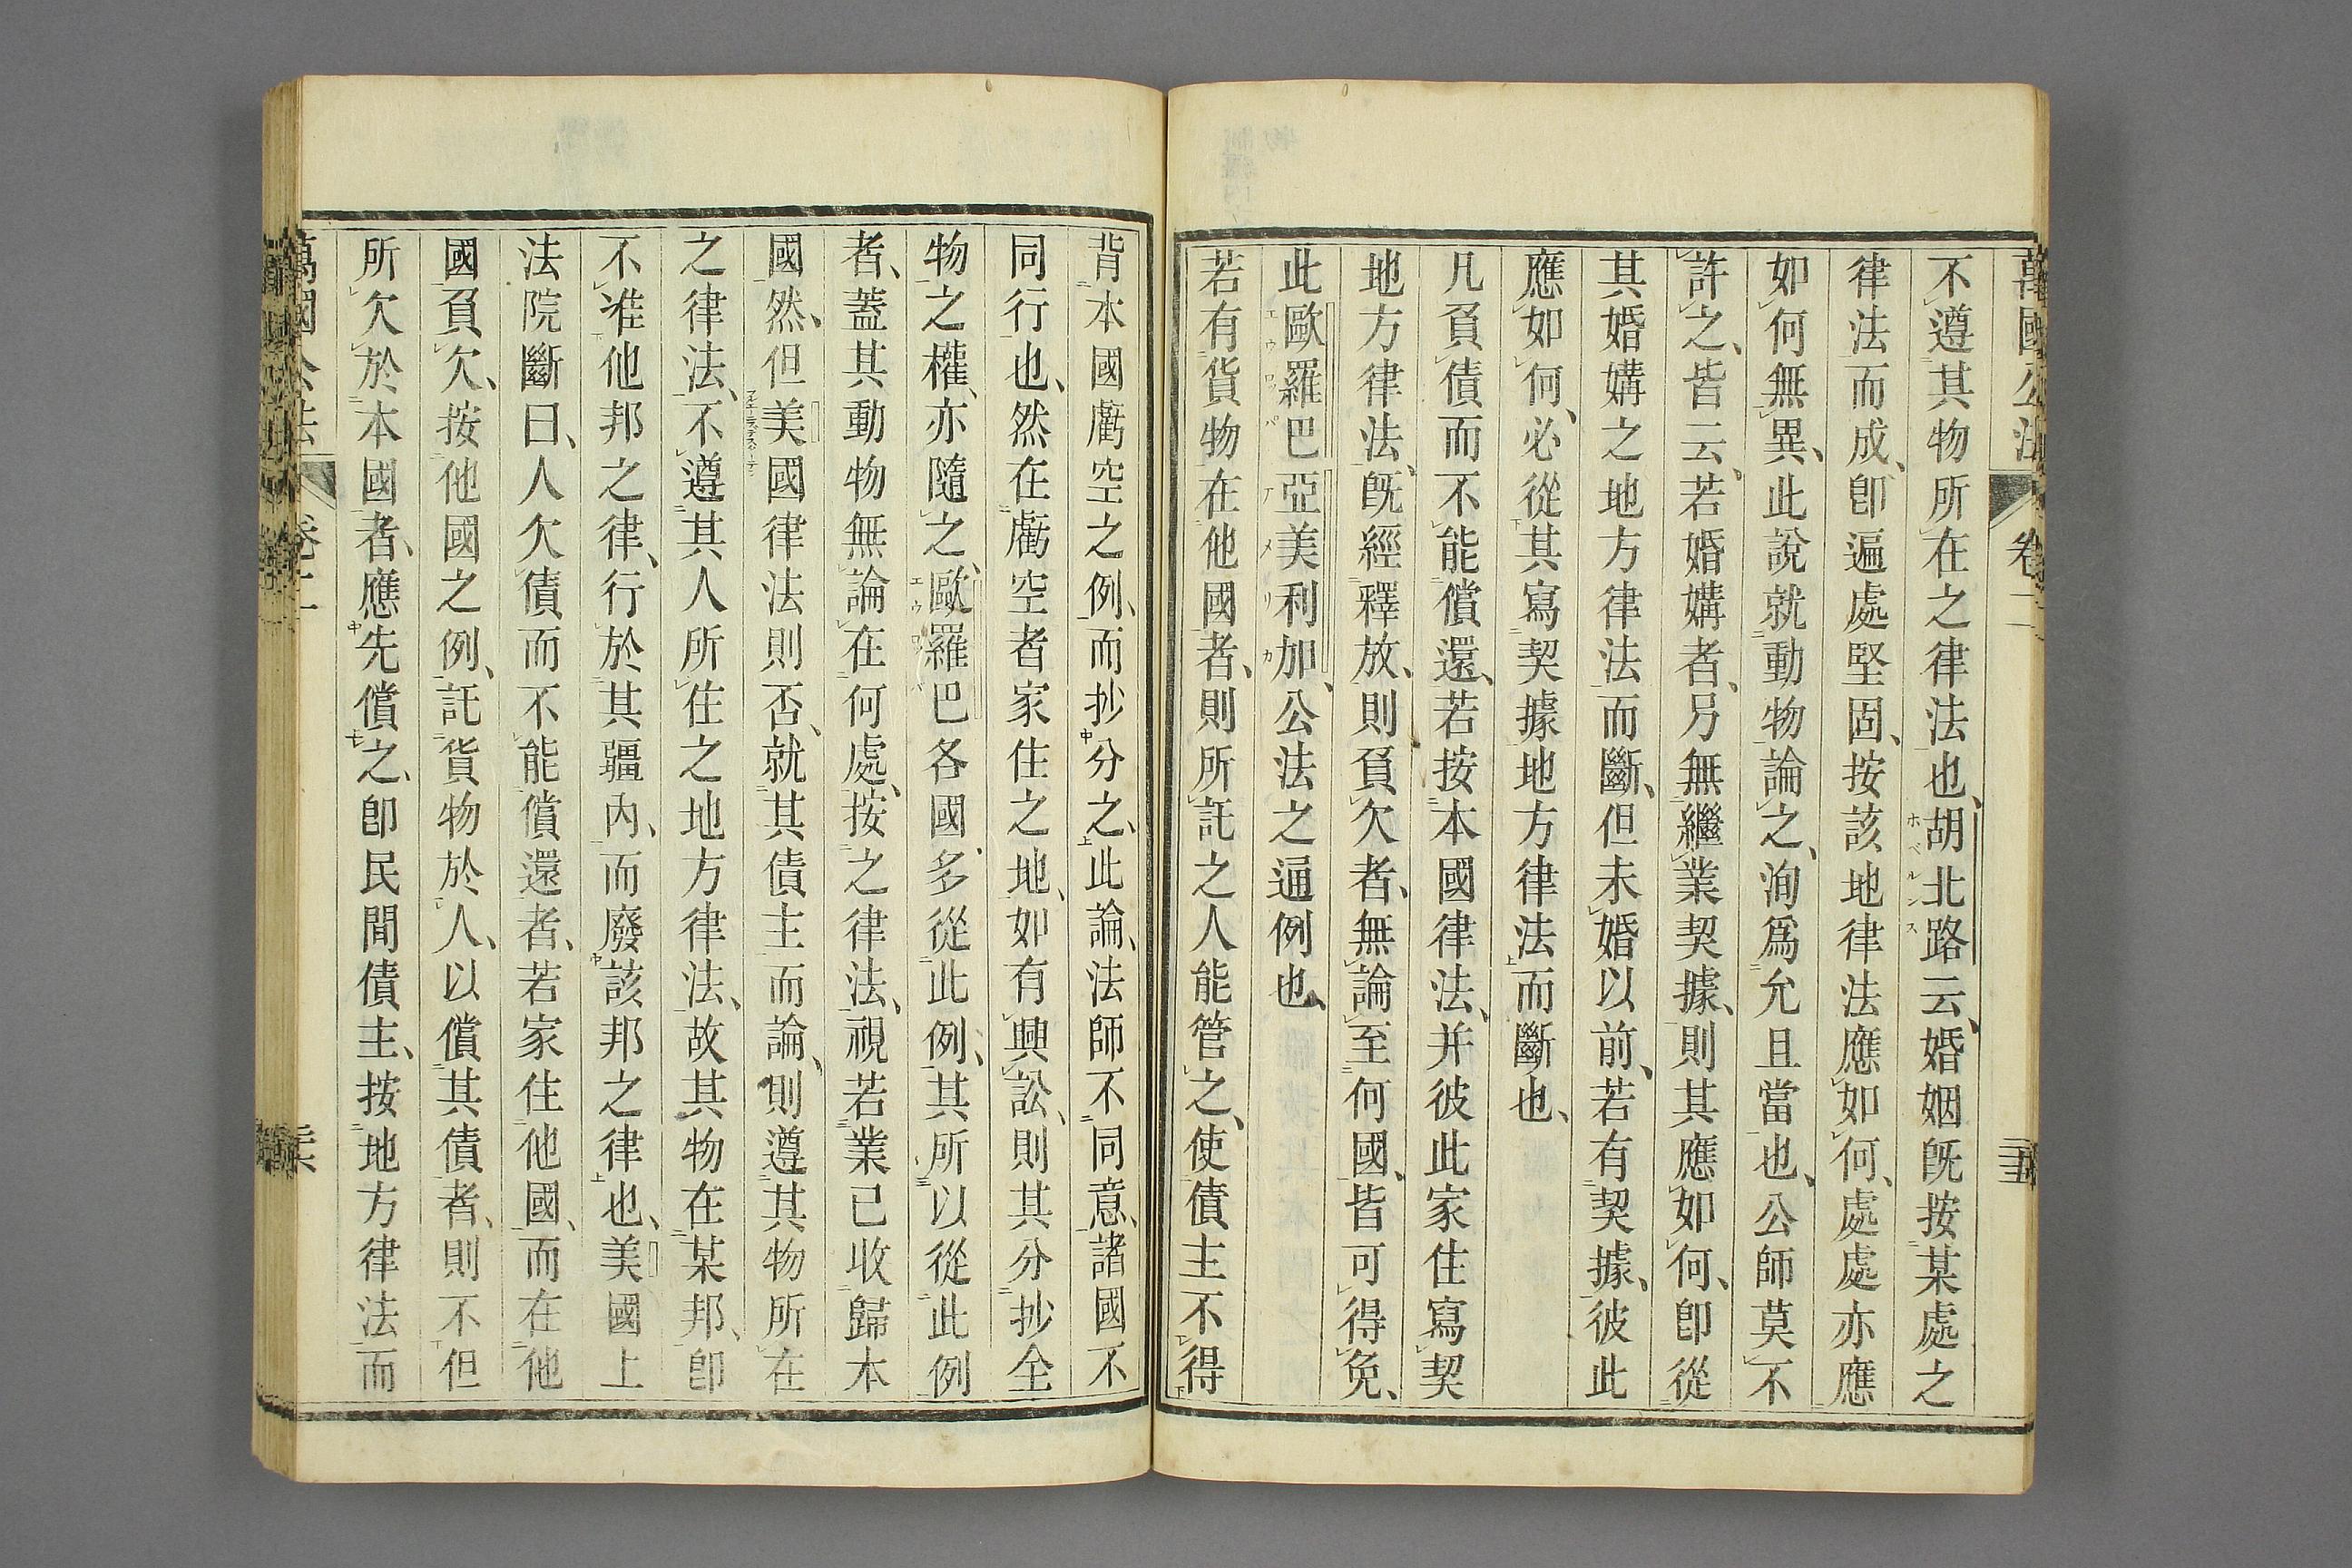 萬國公法 卷二
不遵其物所在之律法也、胡北路云、婚姻旣按某處之
律法而成、卽遍處堅固、按該地律法應如何、處處亦應
如何無異、此說就動物論之、洵爲允且當也、公師莫不
許之、皆云、若婚媾者、另無繼業契據、則其應如何、卽從
其婚媾之地方律法而斷、但未婚以前、若有契據、彼此
應如何、必從其寫契據地方律法而斷也、
凡負債而不能償還、若按本國律法、并彼此家住寫契
地方律法、旣經釋放、則負欠者、無論至何國、皆可得免、
此歐羅巴亞美利加、公法之通例也、
若有貨物在他國者、則所託之人能管之、使債主不得
背本國虧空之例、而抄分之、此論、法師不同意、諸國不
同行也、然在虧空者家住之地、如有興訟、則其分抄全
物之權、亦隨之、歐羅巴各國多從此例、其所以從此例
者、蓋其動物無論在何處、按之律法、視若業已收歸本
國然、但美國律法則否、就其債主而論、則遵其物所在
之律法、不遵其人所住之地方律法、故其物在某邦、卽
不准他邦之律、行於其疆內、而廢該邦之律也、美國上
法院斷曰、人欠債而不能償還者、若家住他國、而在他
國負欠、按他國之例、託貨物於人、以償其債者、則不但
所欠於本國者、應先償之、卽民間債主、按地方律法而
萬國公法 卷二